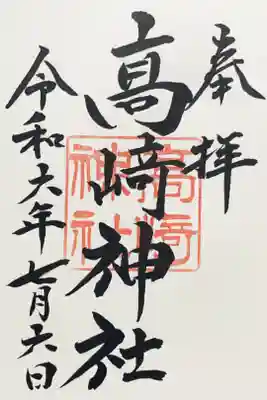 奉拝
髙﨑神社
高﨑神社
令和六年七月六日